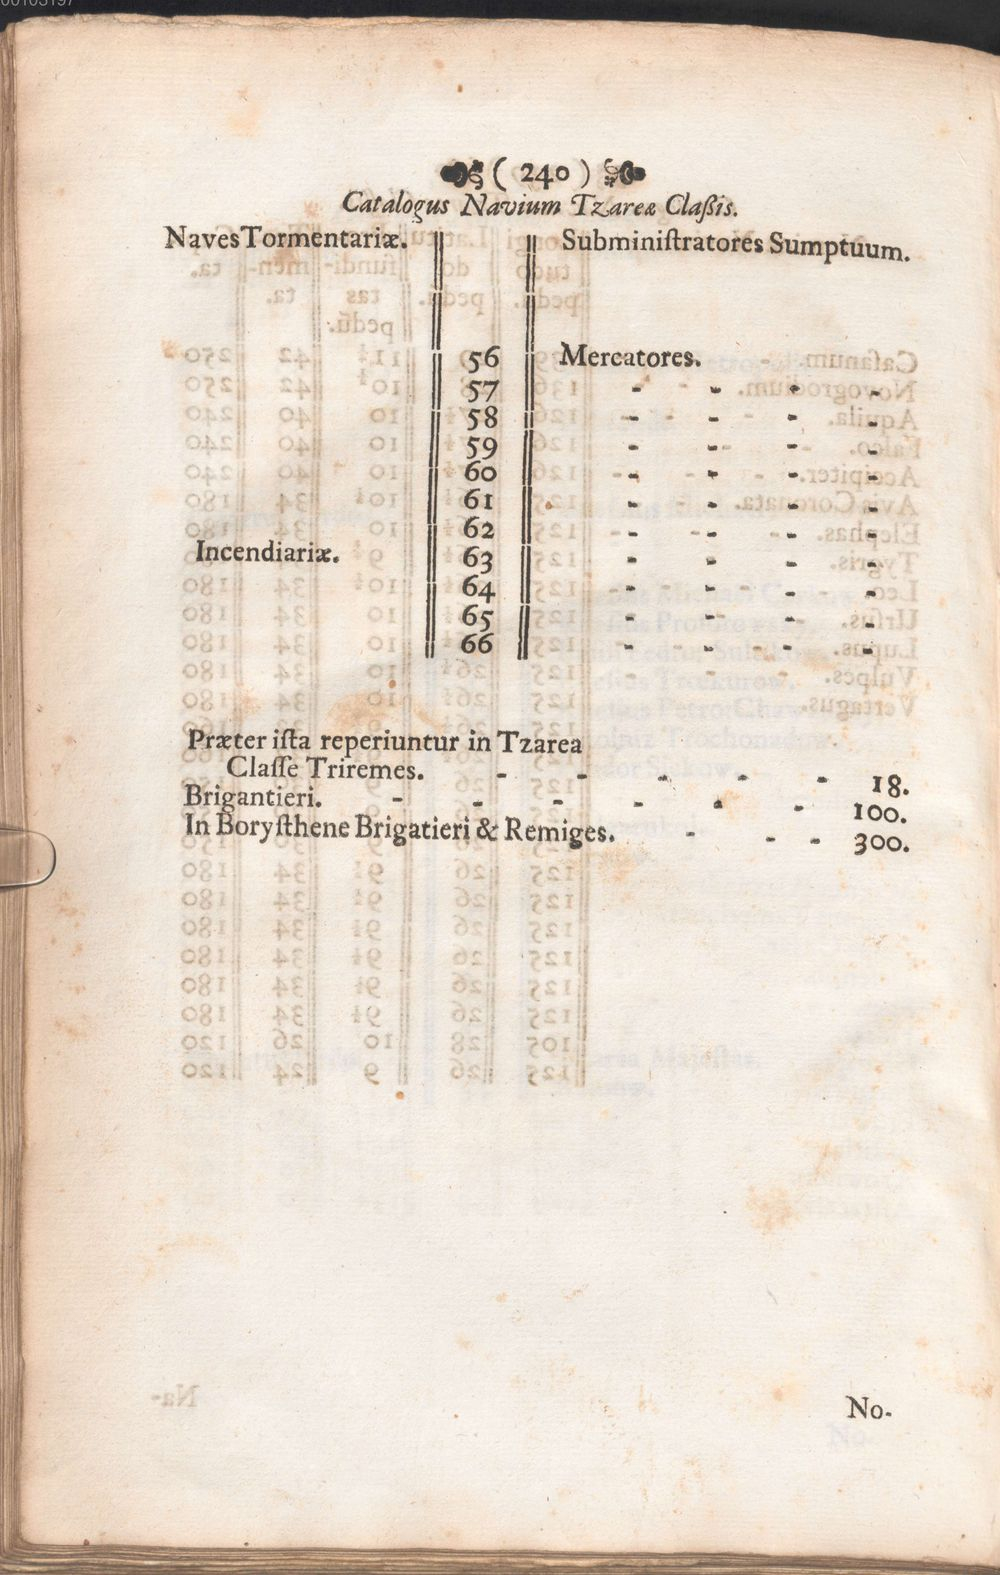 ( 240 )
Catalogus Navium Tzareæ Claßis.
Naves Tormentariæ. Subminiſtratores Sumptuum.
56 Mercatores.
57 - - - -
58 - - - -
59 - - - -
60 - - - -
61 - - - -
62 - - - -
Incendiariæ. 63 - - - -
64 - - - -
65 - - - -
66 - - - -
Præter iſta reperiuntur in Tzarea
Claſſe Triremes. - - - - - 18.
Brigantieri. - - - - - - 100.
In Boryſthene Brigatieri & Remiges. - - - 300.
No-